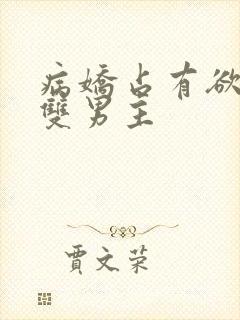 病嬌占有欲
雙男主
賈文荣